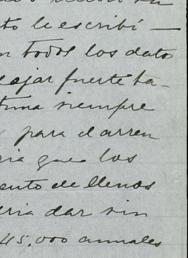 to le escribí —
n todos los dato
ajar fuerte ba-
tma siempre
para darren
ria que los
ento de llenos
eria dar sin
45,000 anuales